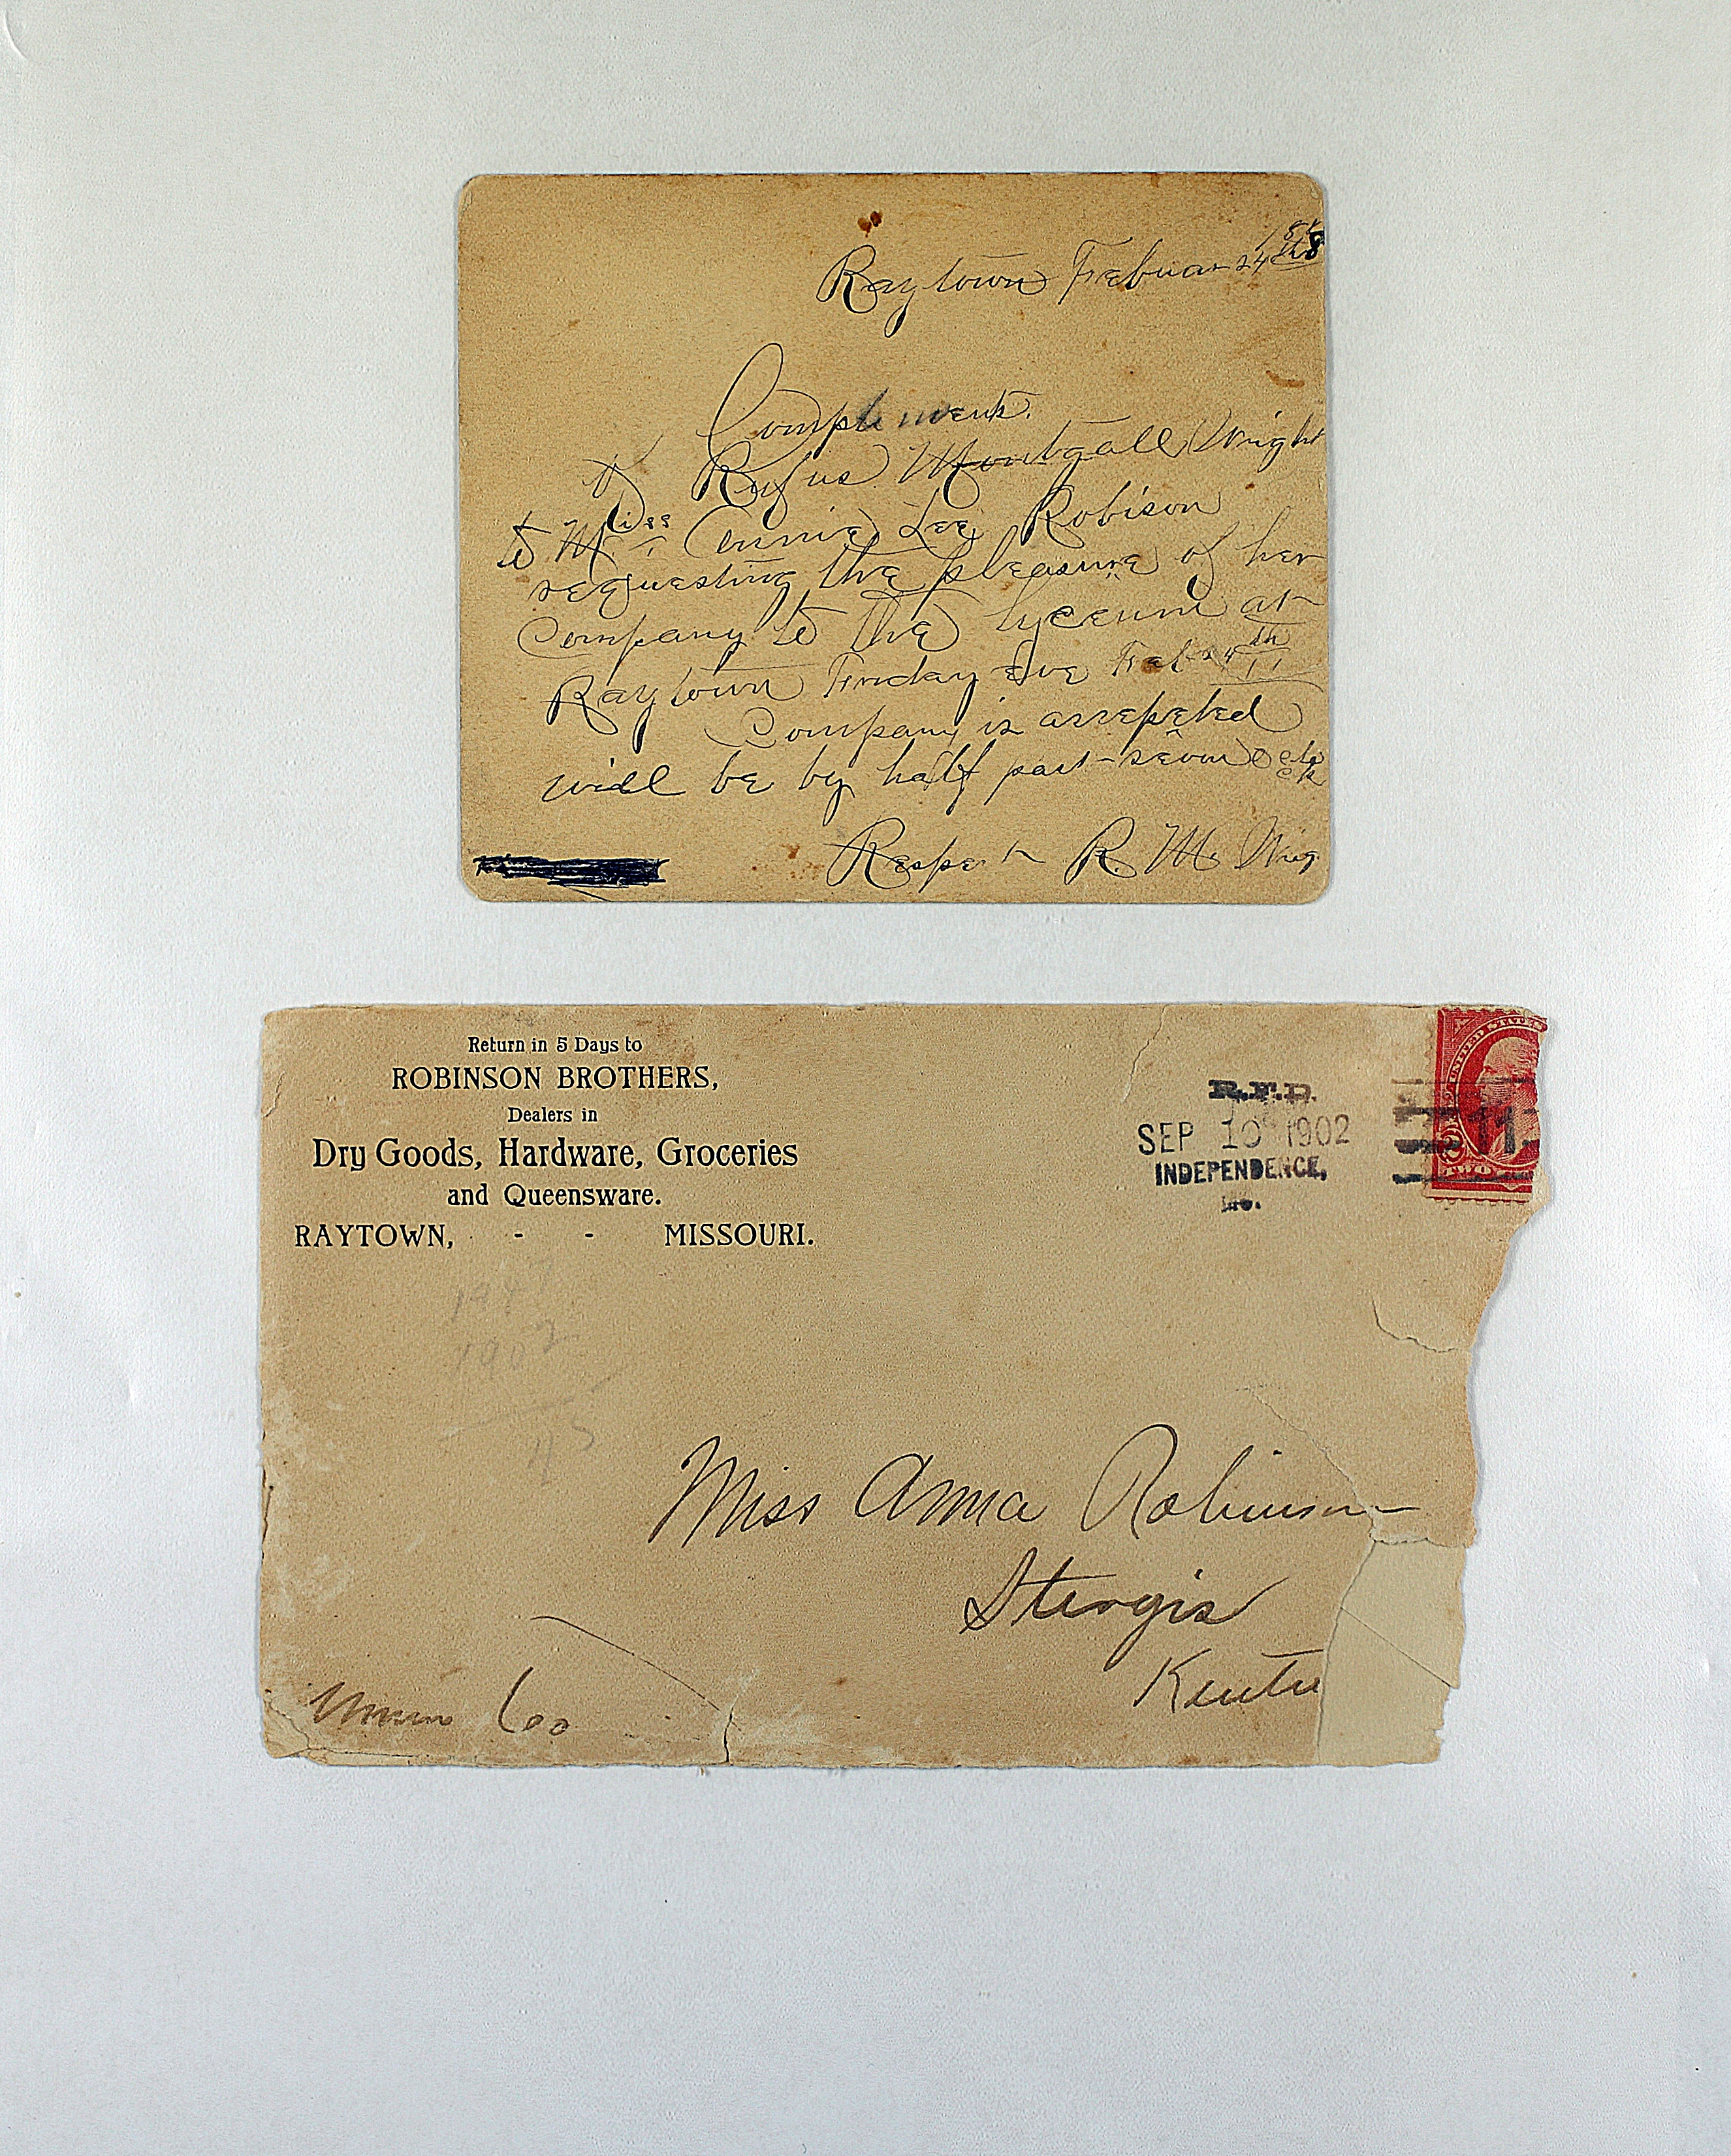 Raytown Febuar 24th
Compliments
of Rufus Montgall Wright
to Miss Annie Lee Robison
requesting the pleasure of her
Company to the Lyceum at
Raytown Friday eve Feb 24th
Company is
will be by half past
Respet R. M. Wrig
Return in 5 Days to
ROBINSON BROTHERS,
Dealers in
Dry Goods, Hardware, Groceries
and Queensware.
RAYTOWN, - - MISSOURI.
R.F.D.
SEP 10 1902
INDEPENDENCE,
Mo.
11
UNITED STATES
2
TWO
1947
1902
45
Miss Anna Robinson
Sturgis
Kentu
Union Co